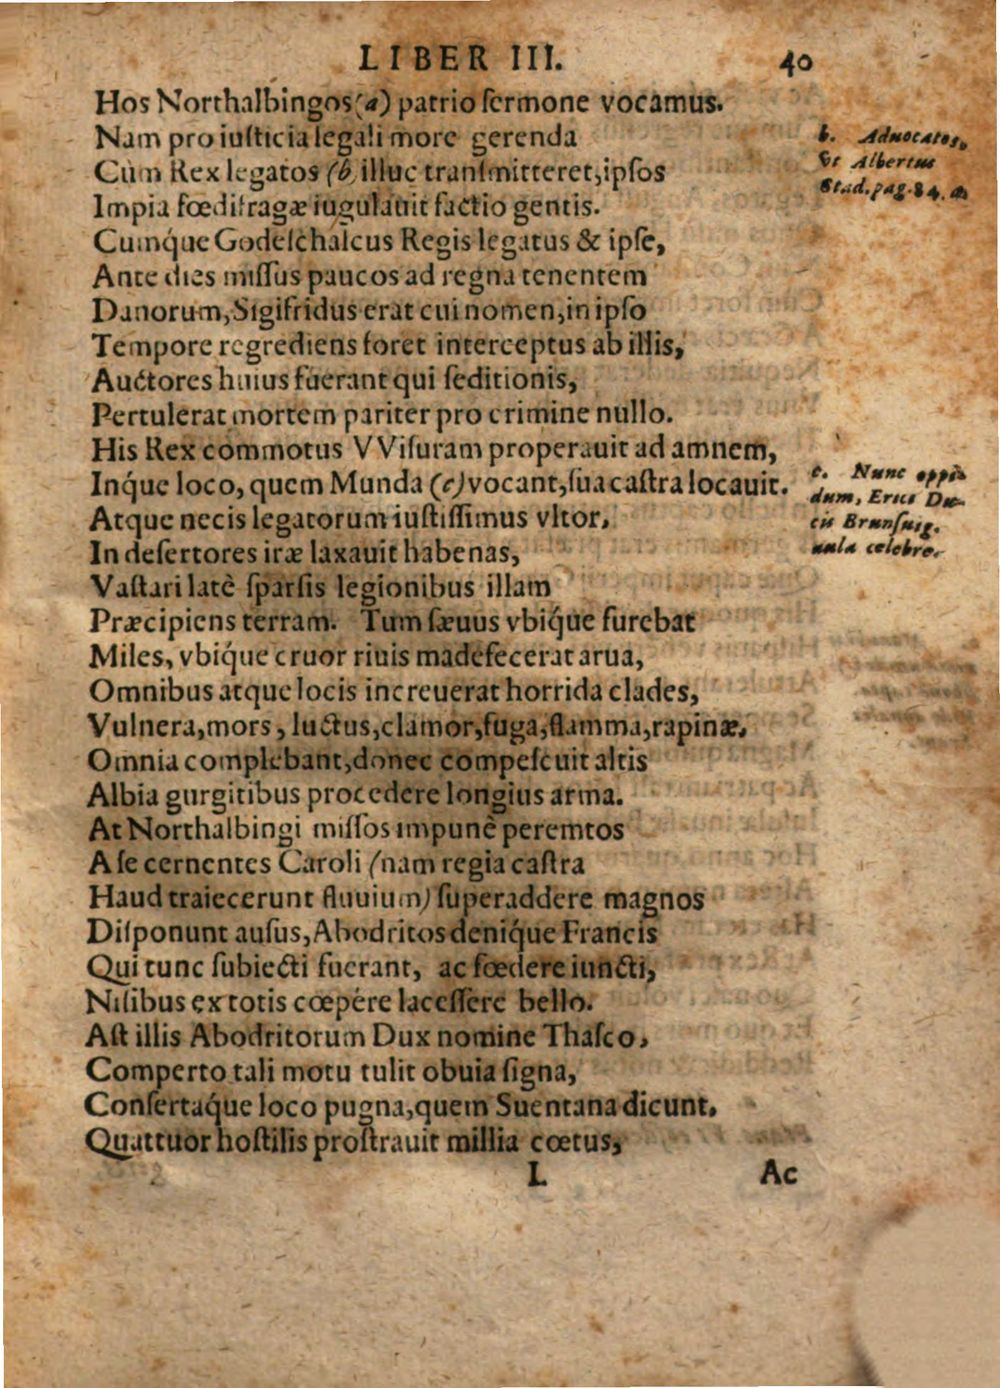 LIBER III. 40
Hos Northalbingos (a) patrio ſermone vocamus.
Nam pro iuſticia legali more gerenda
Cùm Rex legatos (b, illuc tranſmitteret, ipſos
Impia fœdifragæ iugulauit factio gentis.
Cumq́ue Godeſchalcus Regis legatus & ipſe,
Ante dies miſſus paucos ad regna tenentem
Danorum, Sigifridus erat cui nomen, in ipſo
Tempore regrediens foret interceptus ab illis,
Auctores huius fuerant qui ſeditionis,
Pertulerat mortem pariter pro crimine nullo.
His Rex commotus VViſuram properauit ad amnem,
Inq́ue loco, quem Munda (c) vocant, ſua caſtra locauit.
Atque necis legatorum iuſtiſſimus vltor,
In deſertores iræ laxauit habenas,
Vaſtari latè ſparſis legionibus illam
Præcipiens terram. Tum ſæuus vbiq́ue furebat
Miles, vbiq́ue cruor riuis madefecerat arua,
Omnibus atque locis increuerat horrida clades,
Vulnera, mors, luctus, clamor, fuga, flamma, rapinæ,
Omnia complebant, donec compeſcuit altis
Albia gurgitibus procedere longius arma.
At Northalbingi miſſos impunè peremtos
A ſe cernentes Caroli (nam regia caſtra
Haud traiecerunt fluuium) ſuperaddere magnos
Diſponunt auſus, Abodritos deniq́ue Francis
Qui tunc ſubiecti fuerant, ac fœdere iuncti,
Niſibus ex totis cœpére laceſſere bello.
Aſt illis Abodritorum Dux nomine Thaſco,
Comperto tali motu tulit obuia ſigna,
Conſertaq́ue loco pugna, quem Suentana dicunt,
Quattuor hoſtilis proſtrauit millia cœtus,
L Ac
b. Aduocatos,
vt Albertus
Stad. pag. 84. a.
c. Nunc oppi-
dum, Erici Du-
cis Brunſuig.
aula celebre.